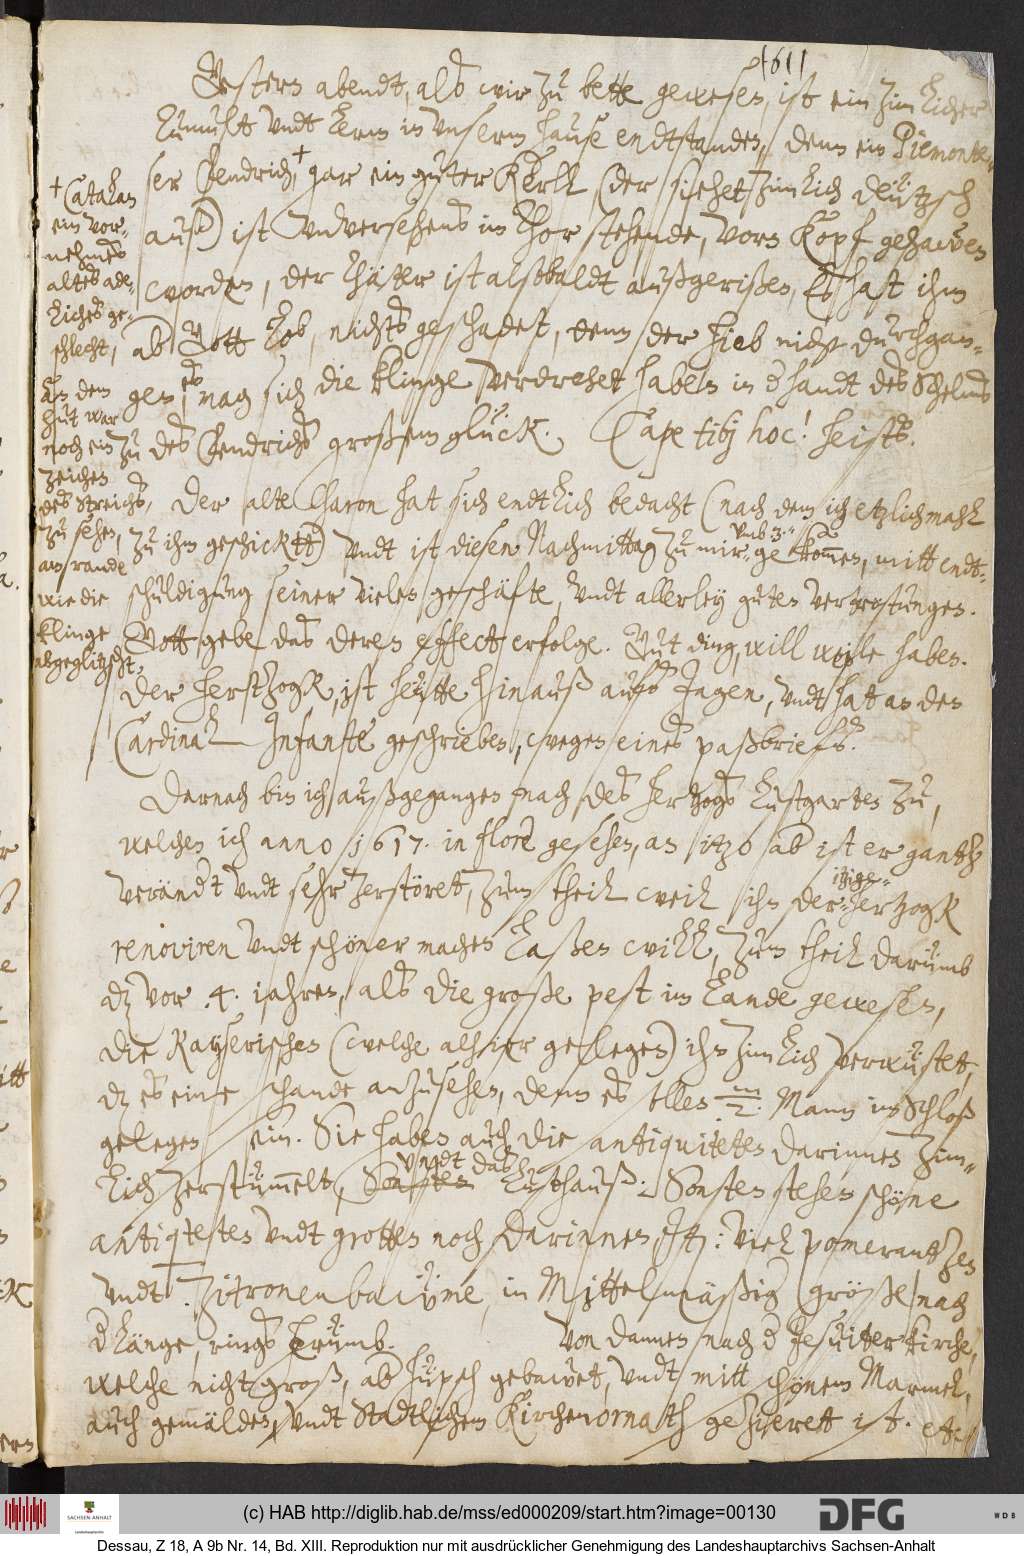 611
Gestern abendt, alß wir zu bette gewesen, ist ein zimlicher
tumult vndt lerm in vnserm hause endtstanden, denn ein Piemonte-
ser Fendrich, + gar ein guter Kerll (der siehet zimlich deützsch
auß) ist vnversehens im Thor stehende, vorn Kopf gehawen
worden, der Thäter ist alßbaldt außgerißen, Es hat ihm
ab Gott lob, nichts geschadet, denn der hieb nicht durchgan-
gen, es mag sich die klinge verdrehet haben in d handt des Schelms
zu des Fendrichs großem glück. Cape tibj hoc! heists.
+ Catalan
ein vor-
nehmes
altes ade-
liches ge-
schlecht,
An dem
hut war
noch ein
zeichen
des Streichs,
zu sehen,
am rande
wie die
klinge
abgeglitzscht.
Der alte Charon hat sich endtlich bedacht (nach dem ich etzlichmahl
zu ihm geschicktt) vndt ist diesen Nachmittag vmb 3. zu mir ge kommen, mitt endt-
schuldigung seiner vielen geschäfte, vndt allerley guten vertrostungen.
Gott gebe das deren effect erfolge. Gut ding, will weile haben.
Der hertzogk, ist heütte hinauß aufs Jagen, vndt hat an den
Cardinal Infante geschrieben, wegen eines paßbriefs.
Darnach bin ich außgegangen nach des hertzogs lustgarten zu,
welchen ich anno 1617. in flore gesehen, an itzo ab ist er gantz
verändt vndt sehr zerstöret, zum theil weil ihn der itzige hertzogk
renoviren vndt schöner machen laßen will, zum theil darumb
dz vor .4. iahren, alß die große pest im Lande gewesen,
die Kayserischen (welche alhier gelegen) ihn zimlich verwüstet,
dz es eine schande anzusehen, denn es  m/2. Mann im Schloß
gelegen sein. Sie haben auch die antiquiteten darinnen zim-
lich zerstümmelt, vndt das Lusthauß: Sonsten stehen schöne
antiqteten vndt grotten noch darinnen, It: viel pomerantzen
vndt Zitronenbaüme, in Mittelmäßig größe nach
d länge, rings herümb. Von dannen nach d Jesuiter kirche,
welche nicht groß, ab hüpsch gebawet, vndt mitt schönem Marmel,
auch gemälden, vndt Stadtlichem Kirchenornath gezieret ist. etc
(c) HAB http://diglib.hab.de/mss/ed000209/start.htm?image=00130
SACHSEN-ANHALT
Landeshauptarchiv
DFG
WDB
Dessau, Z 18, A 9b Nr. 14, Bd. XIII. Reproduktion nur mit ausdrücklicher Genehmigung des Landeshauptarchivs Sachsen-Anhalt